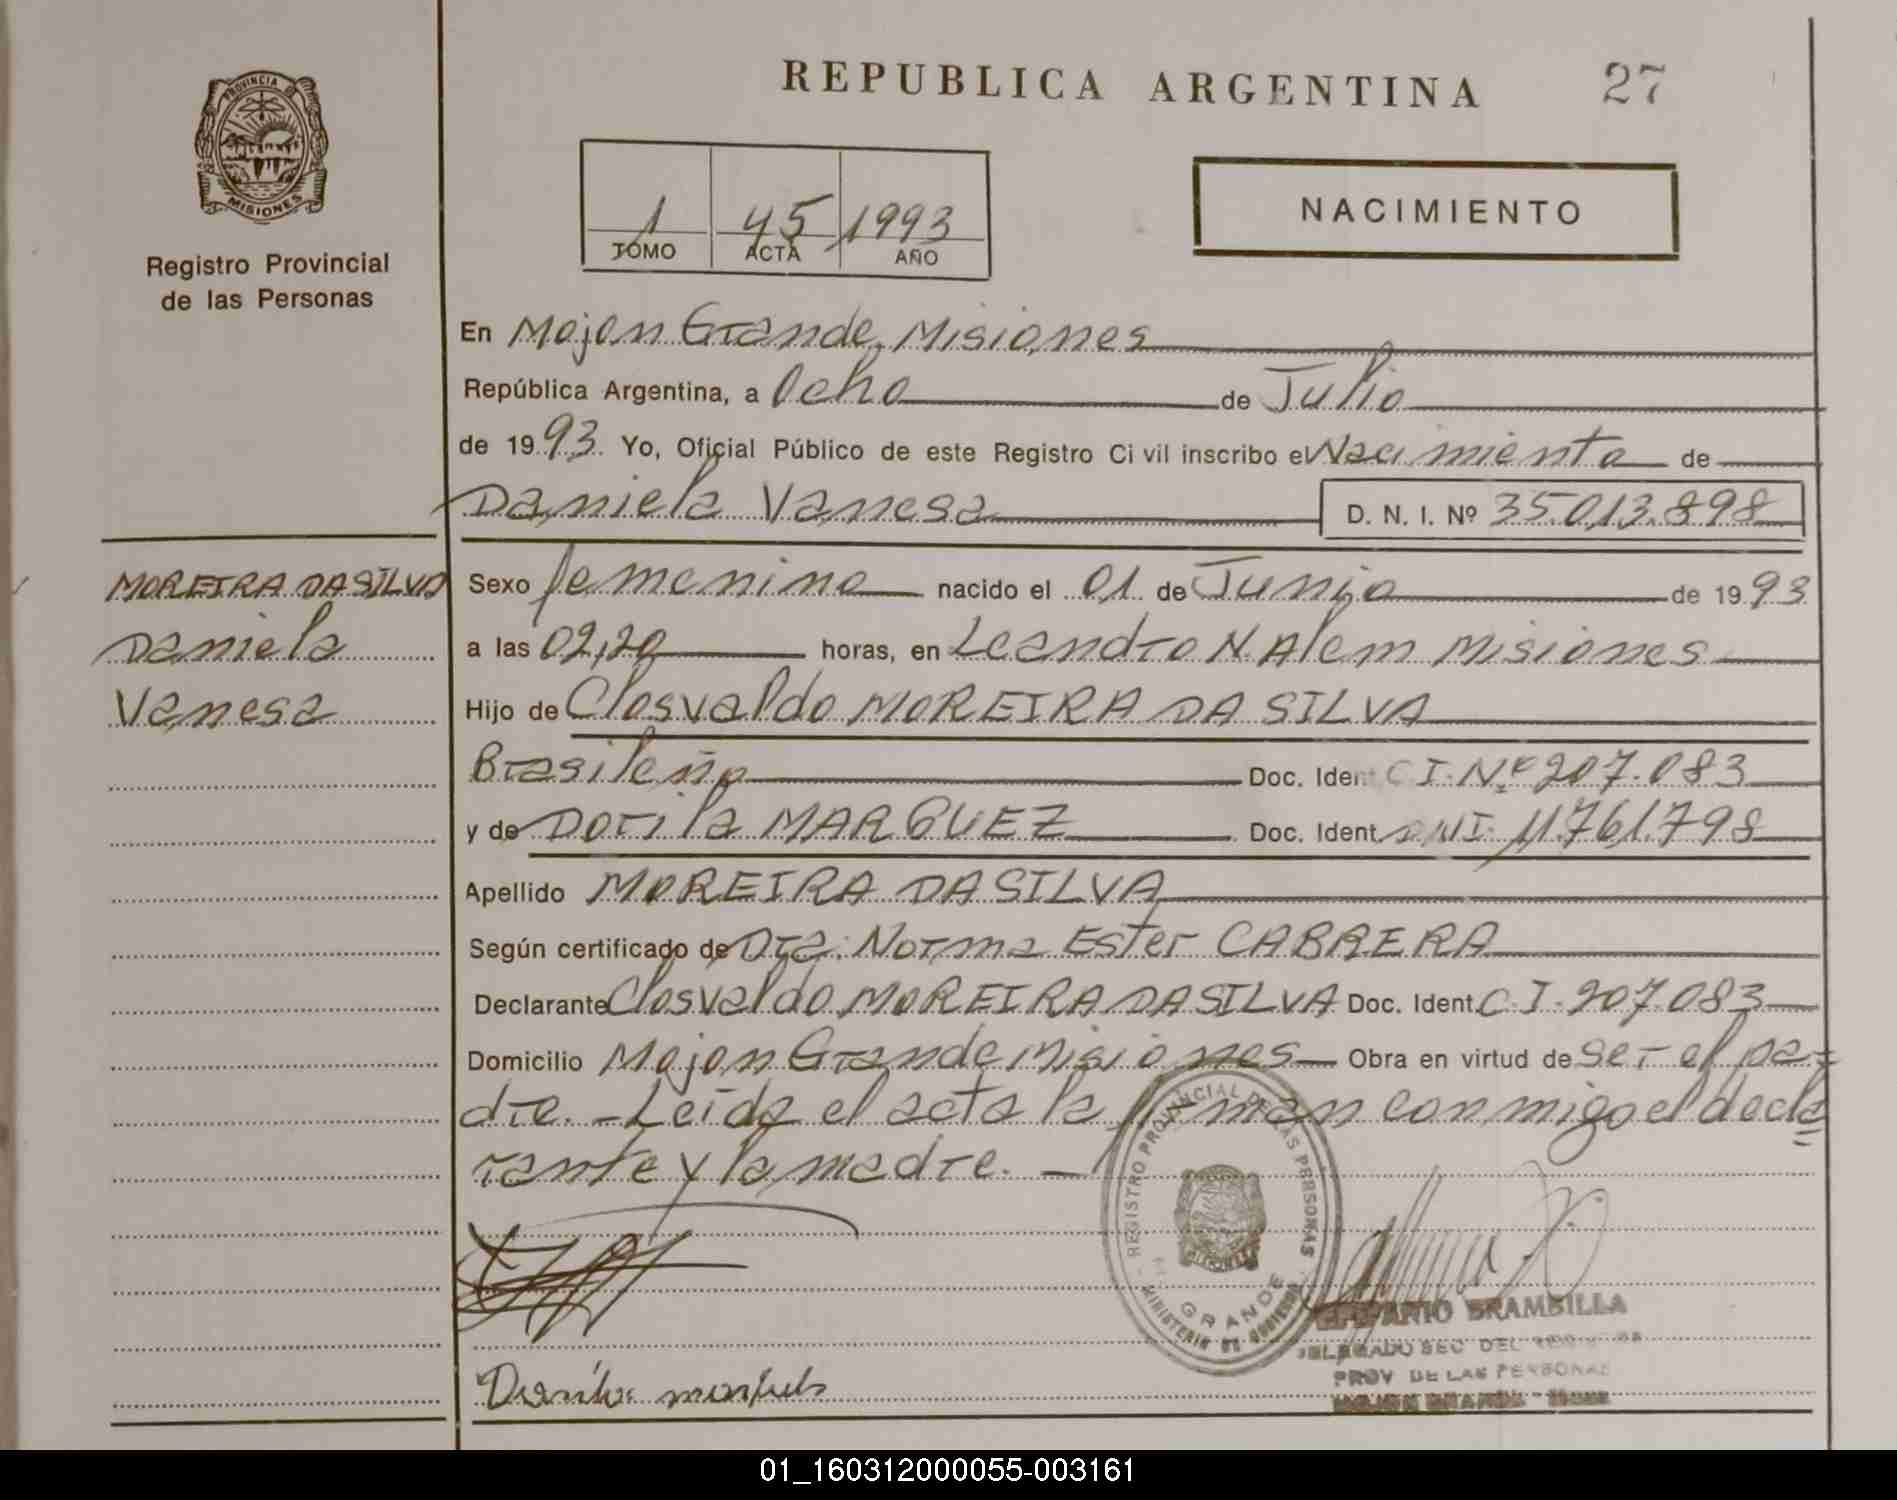 REPUBLICA ARGENTINA
27
PROVINCIA DE
MISIONES
Registro Provincial
de las Personas
1 45 1993
TOMO ACTA AÑO
NACIMIENTO
En Mojon Grande, Misiones
República Argentina, a Ocho de Julio
de 1993. Yo, Oficial Público de este Registro Civil inscribo el Nacimiento de
Daniela Vanesa D. N. I. Nº 35.013.898
MOREIRA DA SILVA
Daniela
Vanesa
Sexo femenino nacido el 01 de Junio de 1993
a las 02,20 horas, en Leandro N. Alem Misiones
Hijo de Closvaldo MOREIRA DA SILVA
Brasileño Doc. Ident C.I. Nº 207.083
y de Dorila MARQUEZ Doc. Ident DNI. 11.761.798
Apellido MOREIRA DA SILVA
Según certificado de Dra. Norma Ester CABRERA
Declarante Closvaldo MOREIRA DA SILVA Doc. Ident C.I. 207.083
Domicilio Mojon Grande Misiones Obra en virtud de ser el pa-
dre. - Leida el acta la firman conmigo el decla
rante y la madre. -
REGISTRO PROVINCIAL DE LAS PERSONAS
GRANDE
MINISTERIO DE GOBIERNO
EPIFANIO BRAMBILLA
DELEGADO SEC DEL
PROV DE LAS PERSONAS
MOJON GRANDE - Mnes
01_160312000055-003161